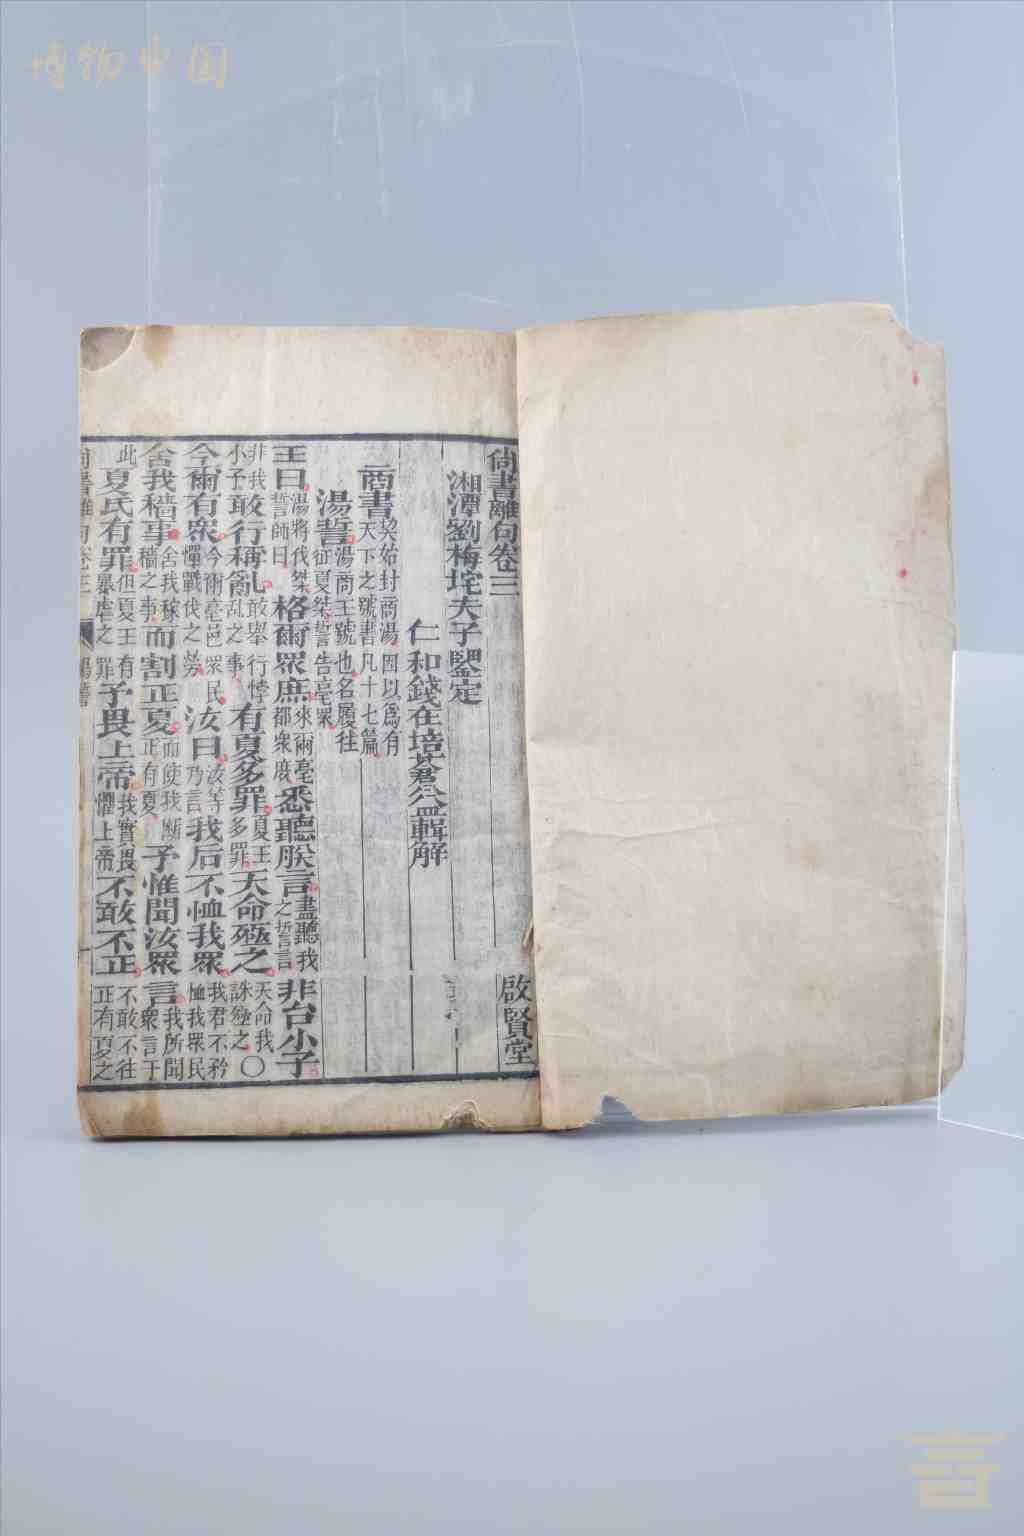 博物中国
尙書離句卷三 啟賢堂
湘潭劉梅垞夫子鑒定
仁和錢在培蒼益輯解
商書契始封商湯因以爲有天下之號書凡十七篇
湯誓湯商王號也名履往征夏桀誓告亳眾
王曰湯將伐桀誓師曰格爾眾庶來爾亳都眾庶悉聽朕言盡聽我之誓言非台小子
非我小子敢行稱亂敢舉行悖亂之事有夏多罪夏王多罪天命殛之天命我誅殛之〇
今爾有眾今爾亳邑眾民憚戰伐之勞汝曰汝等乃言我后不恤我眾我君不矜恤我眾民
舍我穡事舍我稼穡之事而割正夏而使我斷正有夏予惟聞汝眾言我所聞眾言于
此夏氏有罪但夏王有暴虐之罪予畏上帝我實畏懼上帝不敢不正不敢不往正有夏之